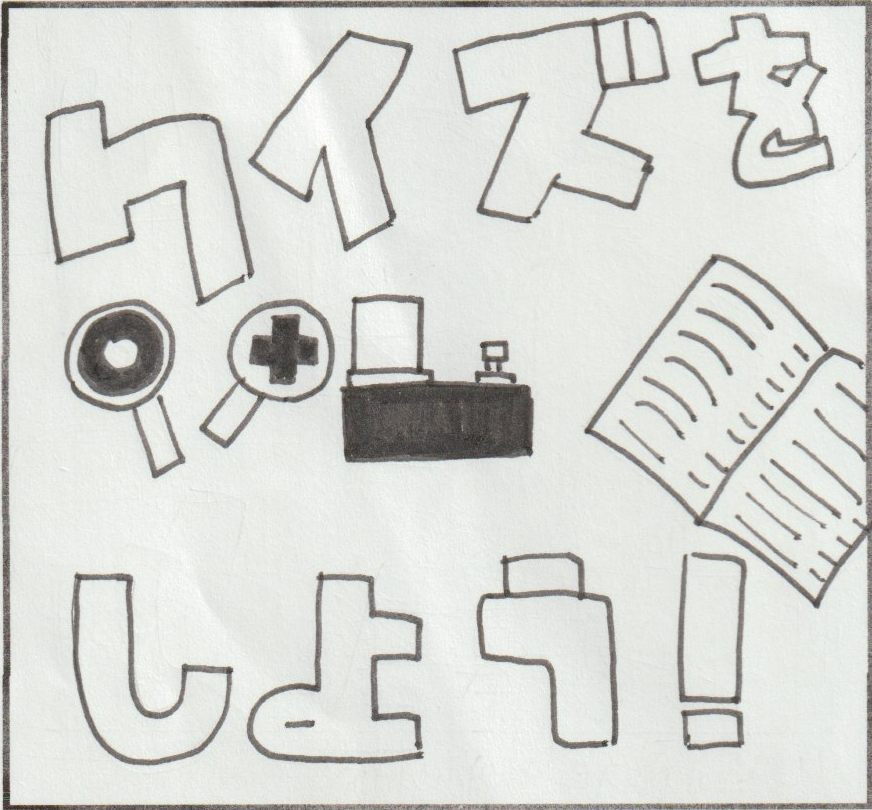 クイズを
しよう!